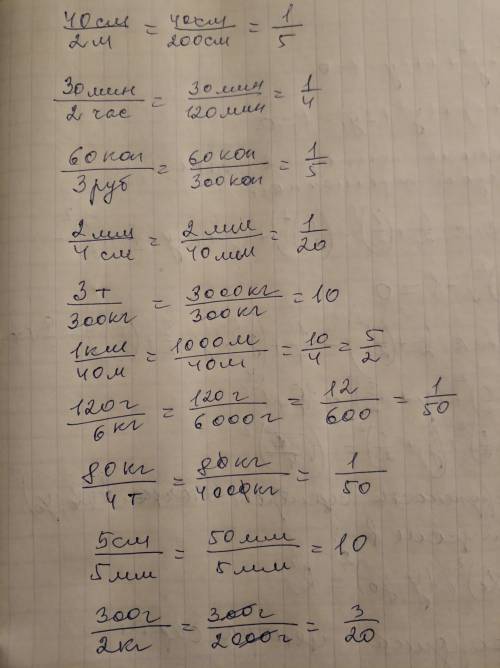 40см/2м = 40см/200см = 1/5
30мин/2час = 30мин/120мин = 1/4
60коп/3руб = 60коп/300коп = 1/5
2мм/4см = 2мм/40мм = 1/20
3т/300кг = 3000кг/300кг = 10
1км/40м = 1000м/40м = 10/4 = 5/2
120г/6кг = 120г/6000г = 12/600 = 1/50
80кг/4т = 80кг/4000кг = 1/50
5см/5мм = 50мм/5мм = 10
300г/2кг = 300г/2000г = 3/20